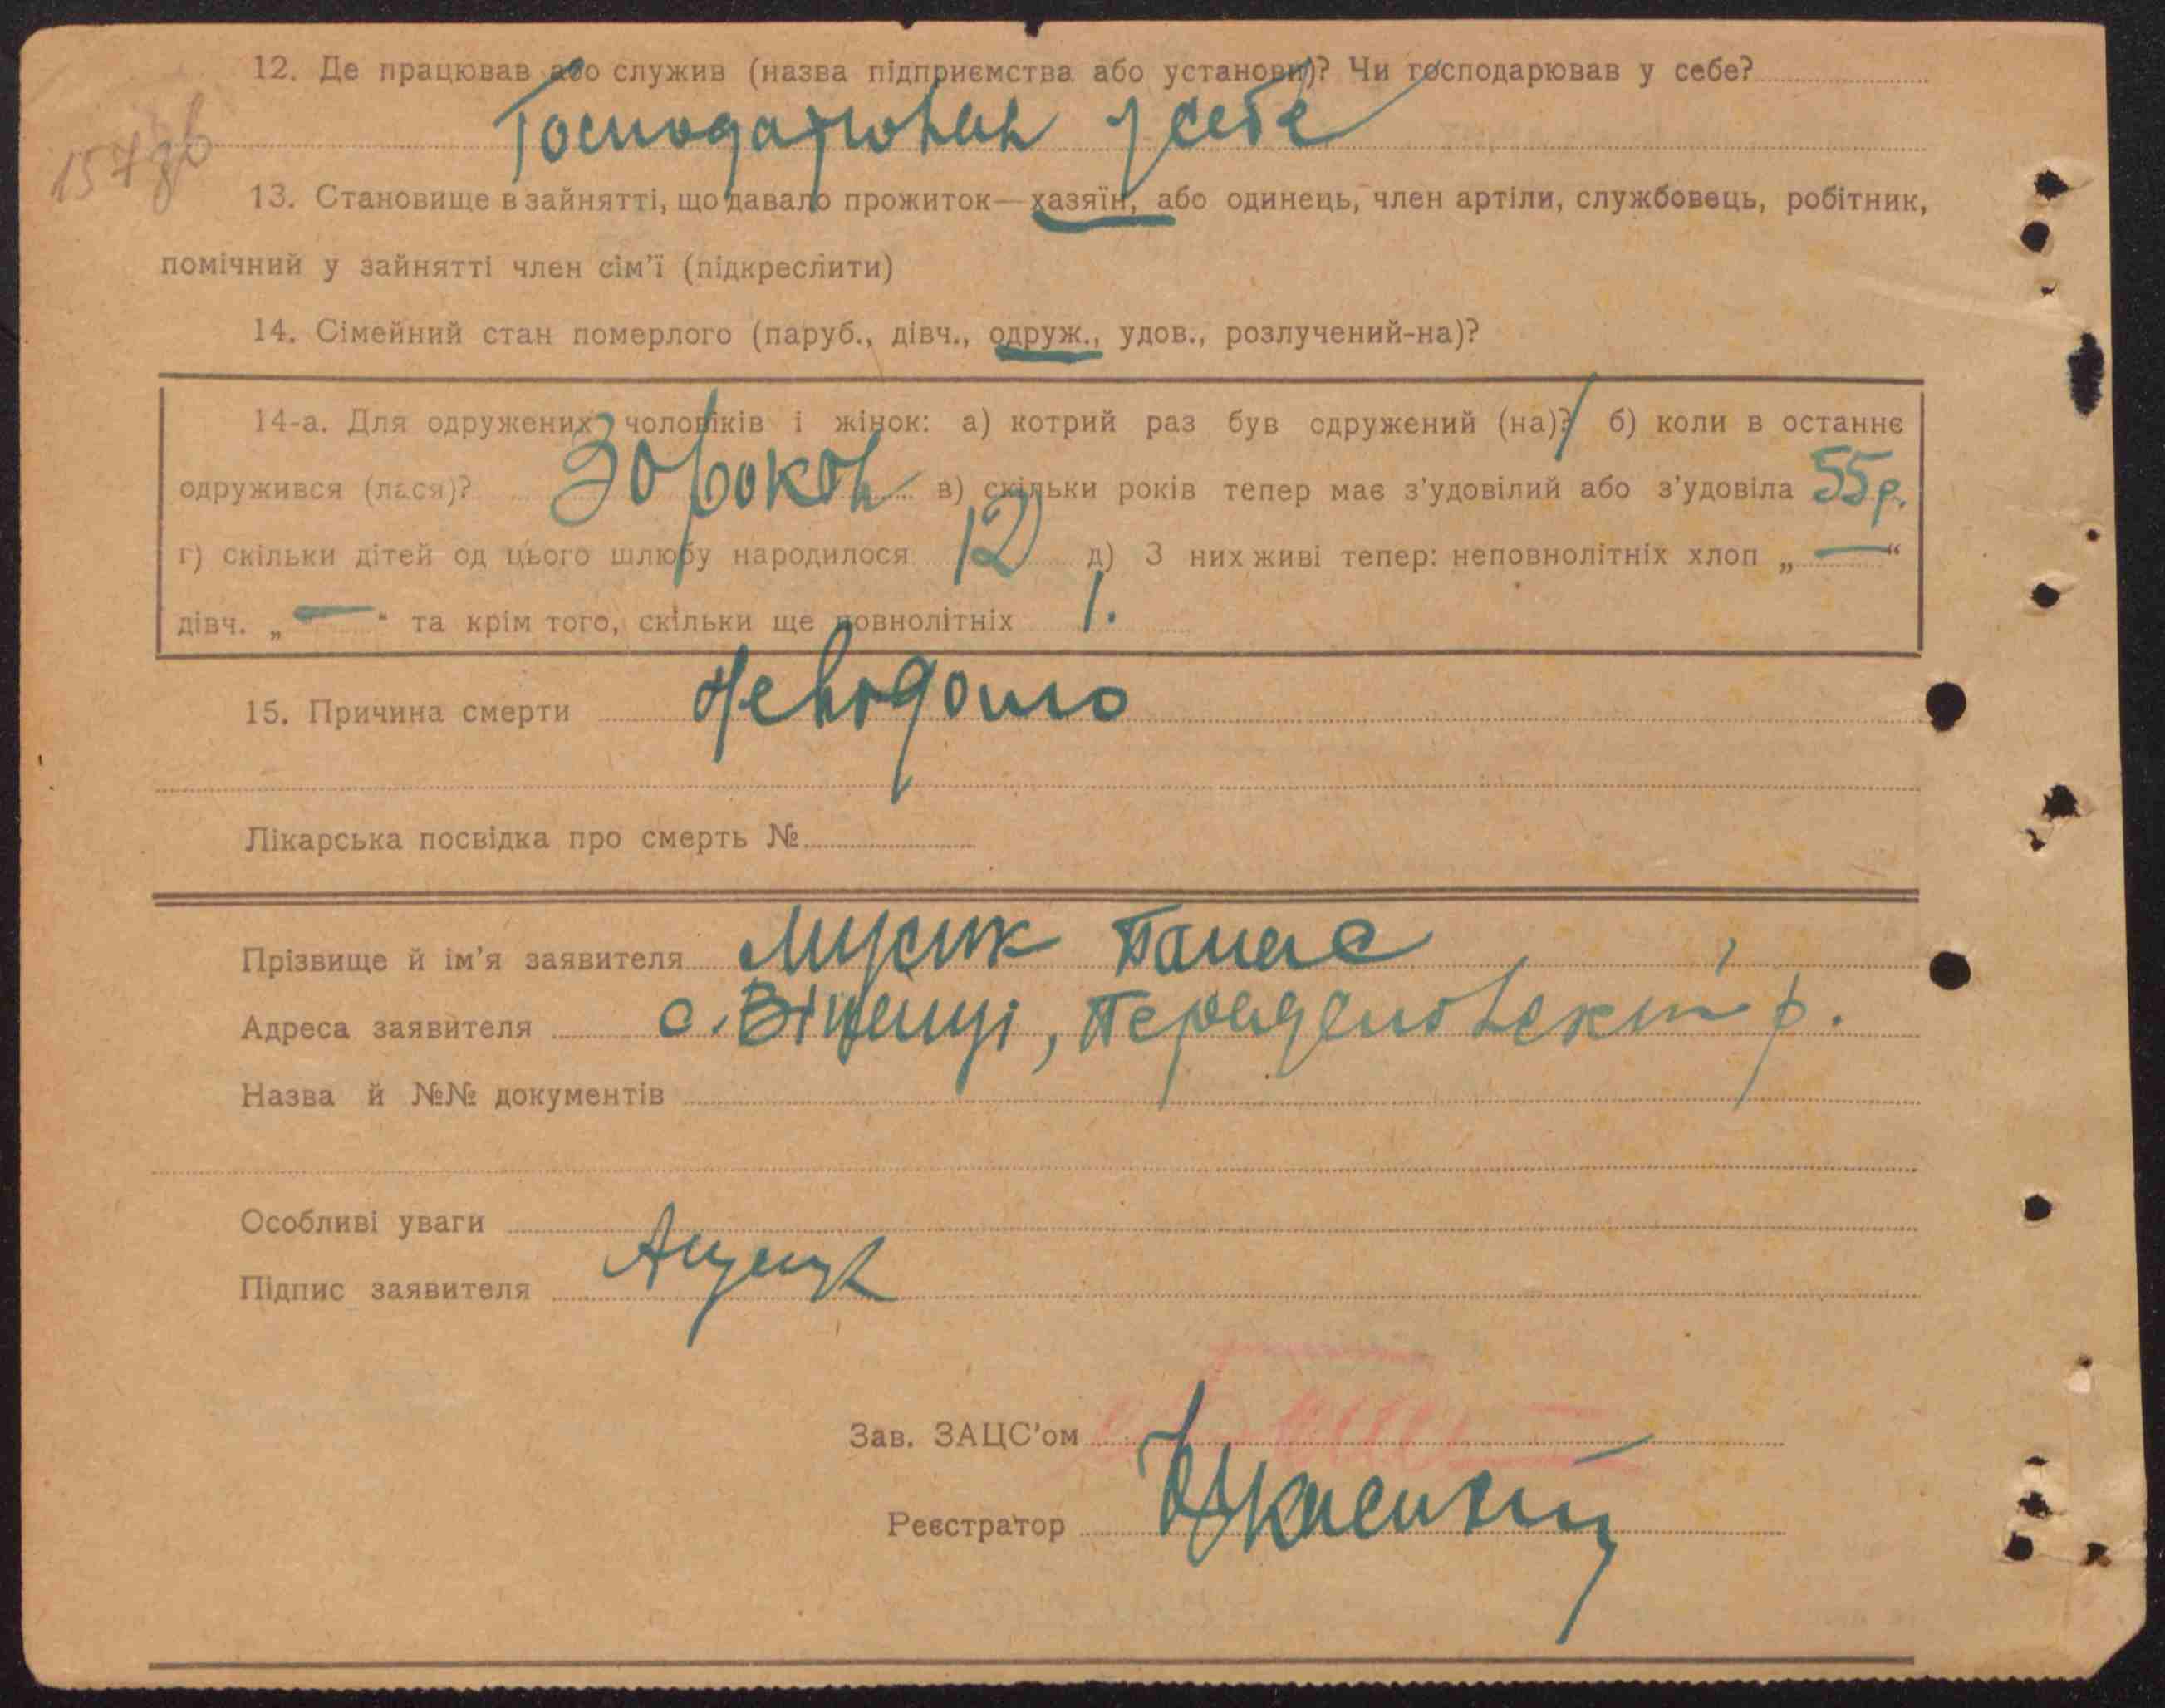 12. Де працював або служив (назва підприємства або установи)? Чи господарював у себе?
Господарював у себе
157 зв
13. Становище в зайнятті, що давало прожиток—хазяїн, або одинець, член артіли, службовець, робітник,
помічний у зайнятті член сім'ї (підкреслити)
14. Сімейний стан померлого (паруб., дівч., одруж., удов., розлучений-на)?
14-а. Для одружених чоловіків і жінок: а) котрий раз був одружений (на)? 1 б) коли в останнє
одружився (лася)? 30 років в) скільки років тепер має з'удовілий або з'удовіла 55 р.
г) скільки дітей од цього шлюбу народилося 12 д) З них живі тепер: неповнолітніх хлоп „ — “
дівч. „ — “ та крім того, скільки ще повнолітніх 1.
15. Причина смерти невідомо
Лікарська посвідка про смерть №
Прізвище й ім'я заявителя Мусик Панас
Адреса заявителя с. р.
Назва й №№ документів
Особливі уваги
Підпис заявителя
Зав. ЗАЦС'ом
Реєстратор